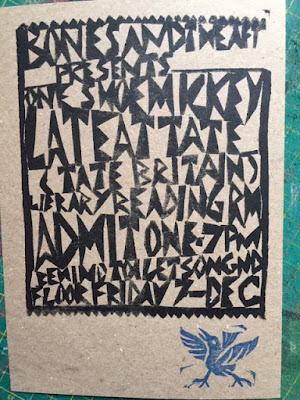 BONES AND THE AFT
PRESENTS
ONE SHOE MICKEY
LATE AT TATE
TATE BRITAINS
LIBRARY READING RM
ADMIT ONE: 7PM
BEHIND TOILETS ON GND
FLOOR FRIDAY DEC